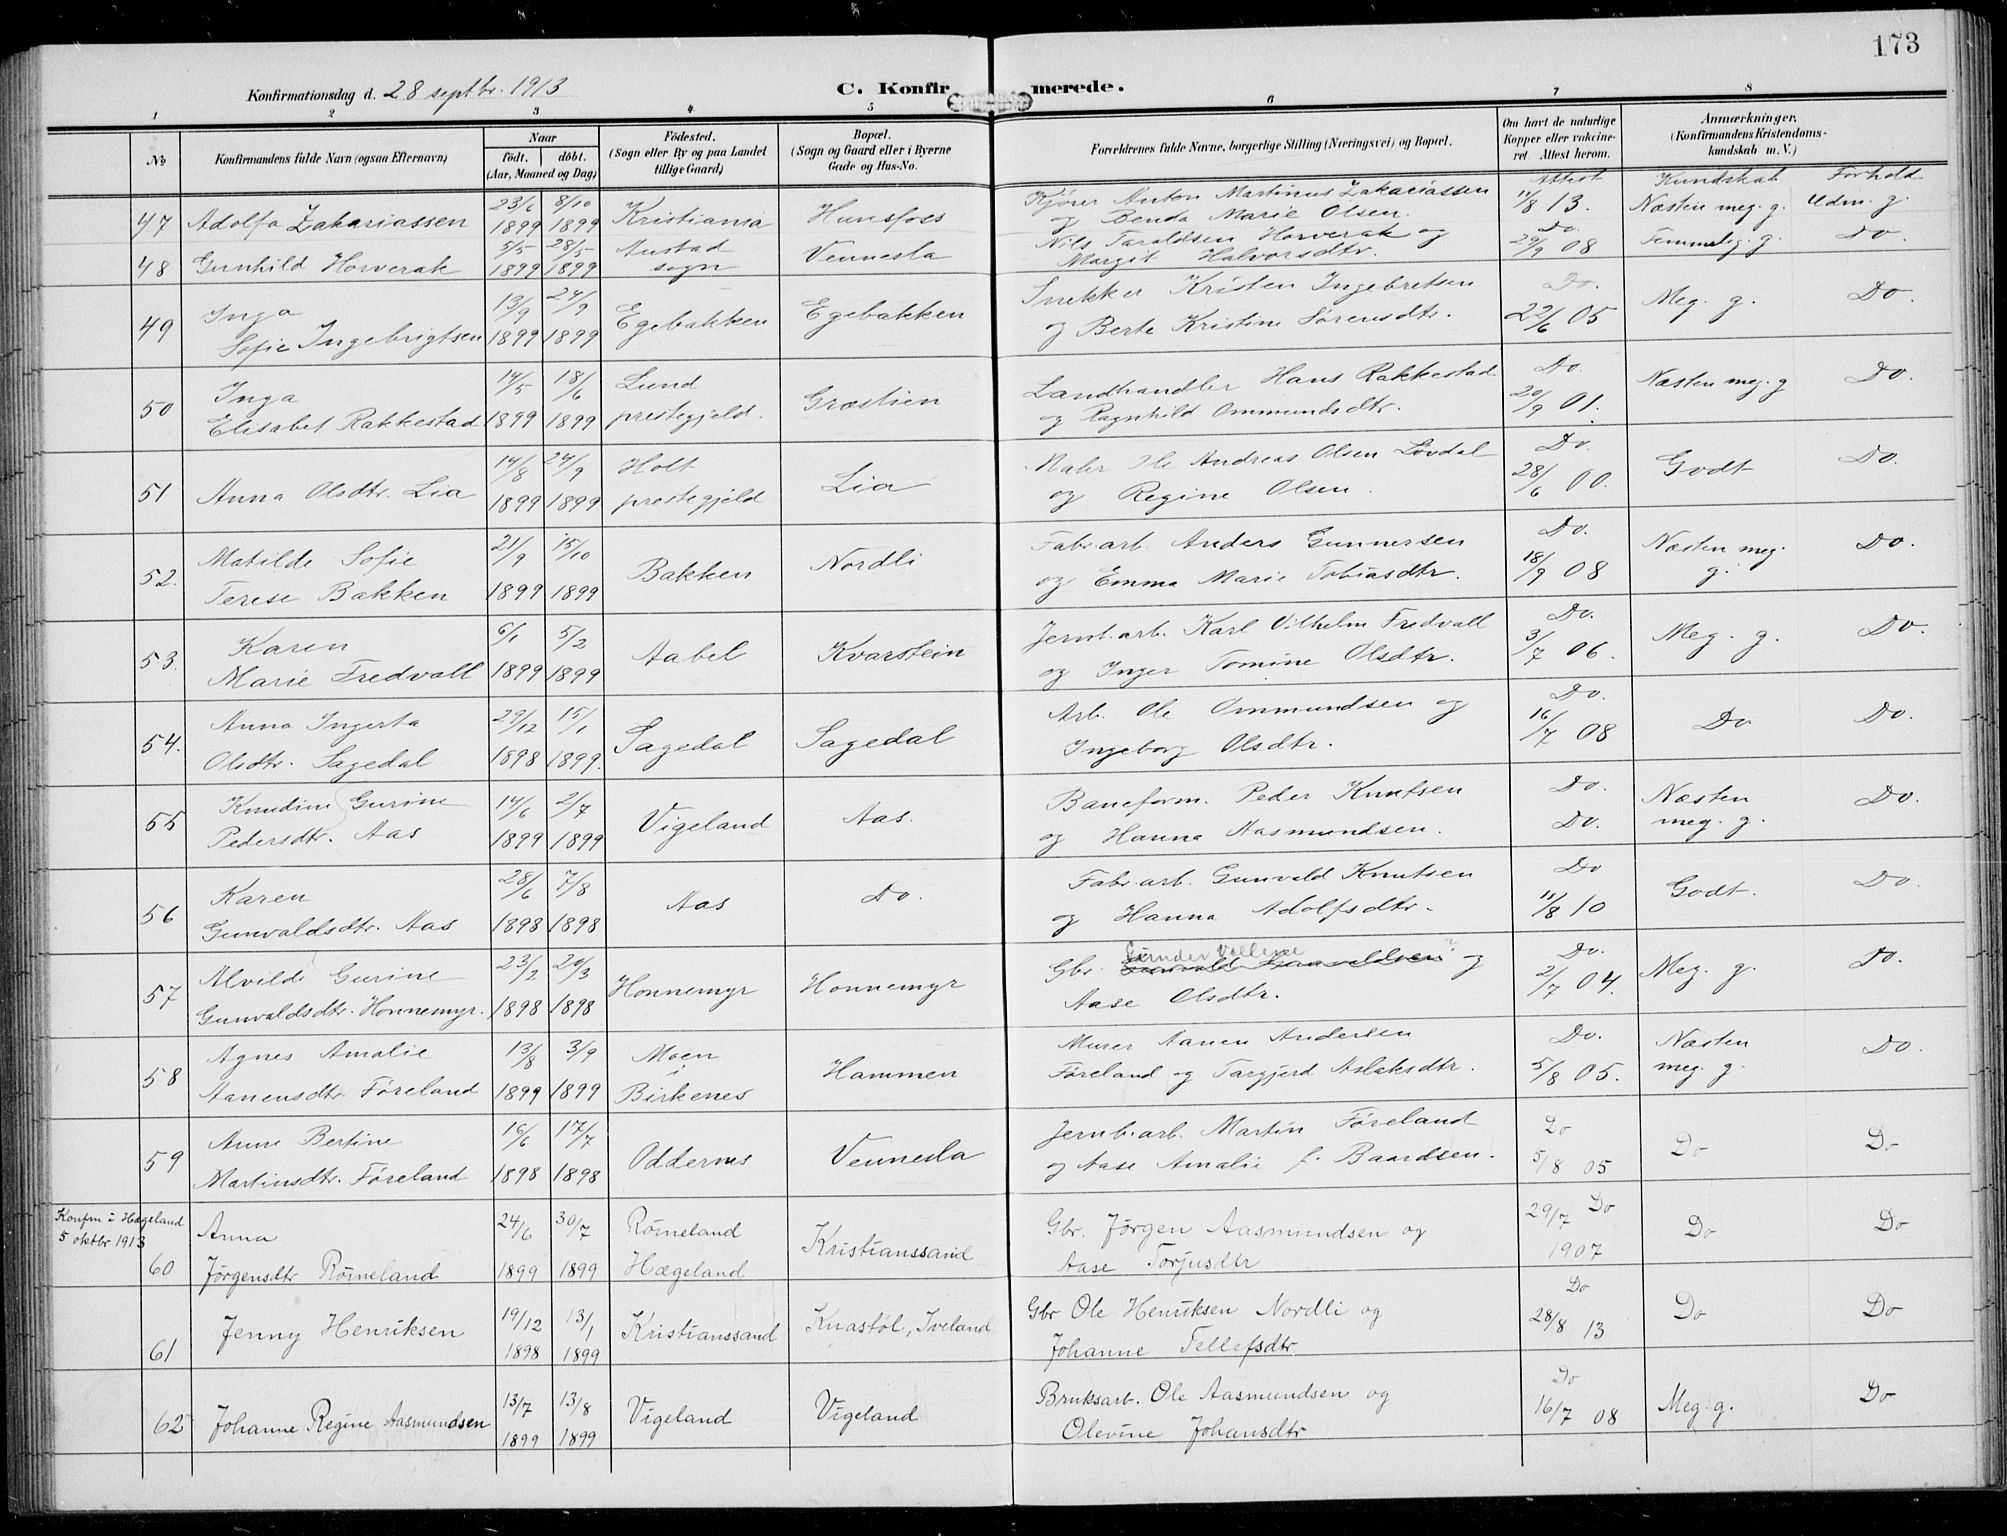 173
Konfirmationsdag d. 28 septbr. 1913
C. Konfirmerede.
1 2 3 4 5 6 7 8
No
Konfirmandens fulde Navn (ogsaa Efternavn)
Naar
født. døbt.
(Aar, Maaned og Dag)
Fødested.
(Sogn eller By og paa Landet
tillige Gaard)
Bopæl.
(Sogn og Gaard eller i Byerne
Gade og Hus-No.
Forældrenes fulde Navne, borgerlige Stilling (Næringsvei) og Bopæl.
Om havt de naturlige
Kopper eller vakcine-
ret Attest herom.
Anmærkninger.
(Konfirmandens Kristendoms-
kundskab m. V.)
Attest Kundskab Forhold
47 Adolfa Zakariassen 23/6 1899 8/10 1899 Kristiania Hunsfoss
Kjører Anton Martinus Zakariassen
og Benda Marie Olsen.
11/8 13. Næsten meg. g. Udm. g.
48 Gunhild Horverak 5/5 1899 28/5 1899 Austad
sogn
Vennesla
Nils Taraldsen Horverak og
Margit Halvorsdtr.
Do.
29/9 08 Temmelig g. Do.
49 Inga
Sofie Ingebrigtsen
13/9 1899 24/9 1899 Egebakken Egebakken
Snekker Kristen Ingebretsen
og Berte Kristine Sørensdtr.
Do.
22/6 05 Meg. g. Do.
50 Inga
Elisabet Rakkestad
14/5 1899 18/6 1899 Lund
prestegjeld.
Græstien
Landhandler Hans Rakkestad
og Ragnhild Ommundsdtr.
Do.
20/9 01. Næsten meg. g Do.
51 Anna Olsdtr. Lia 14/8 1899 24/9 1899 Holt
prestegjeld
Lia
Maler Ole Andreas Olsen Løvdal
og Regine Olsen.
Do.
28/6 00. Godt Do.
52. Matilde Sofie
Terese Bakken
21/9 1899 15/10 1899 Bakken Nordli
Fabr.arb. Anders Gunnersen
og Emma Marie Tobiasdtr.
Do.
18/9 08 Næsten meg.
g.
Do.
53. Karen
Marie Fredvall
6/1 1899 5/2 1899 Aabel Kvarstein
Jernb.arb. Karl Vilhelm Fredvall
og Inger Tomine Olsdtr.
Do.
3/7 06. Meg. g. Do.
54. Anna Ingerta
Olsdtr. Sagedal
29/12 1898 15/1 1899. Sagedal Sagedal
Arb. Ole Ommundsen og
Ingeborg Olsdtr.
Do.
16/7 08 Do Do.
55 Knudine Gurine
Pedersdtr. Aas
14/6 1899 2/7 1899 Vigeland Aas.
Baneform. Peder Knutsen
og Hanna Aasmundsen.
Do.
Do.
Næsten
meg. g.
Do.
56 Karen
Gunvaldsdtr. Aas
28/6 1898 7/8 1898 Aas Do.
Fabr.arb. Gunvald Knutsen
og Hanna Adolfsdtr.
Do
11/8 10 Godt. Do.
57 Alvilde Gurine
Gunvaldsdtr. Honnemyr.
23/2 1898 20/3 1898 Honnemyr Honnemyr
Gbr. og
Aase Olsdtr.
Do.
2/7 04. Meg. g. Do.
58 Agnes Amalie
Aanensdtr. Føreland
13/8 1899 3/9 1899 Moen
i
Birkenes
Hammen
Murer Aanen Andersen
Føreland og Targjerd Aslaksdtr.
Do.
5/8 05. Næsten
meg. g.
Do.
59 Anne Bertine
Martinsdtr. Føreland
16/6 1898 17/7 1898 Oddernes Vennesla
Jernb.arb. Martin Føreland
og Aase Amalie f. Baardsen.
Do
5/8 05 Do Do
Konfm i Hægeland
5 oktbr 1913
60 Anna
Jørgensdtr Røineland
24/6 1899 30/7 1899 Røineland
Hægeland
Kristianssand
Gbr. Jørgen Aasmundsen og
Aase Torjusdtr
29/7 Do
1907
Do Do
61 Jenny Henriksen 19/12 1898 13/1 1899 Kristianssand Knastøl, Iveland
Gbr Ole Henriksen Nordli og
Johanne Tellefsdtr
Do
28/8 13 Do Do
62 Johanne Regine Aasmundsen 13/7 1899 13/8 1899 Vigeland Vigeland
Bruksarb. Ole Aasmundsen og
Olevine Johansdtr
Do
16/7 08 Meg. g. Do